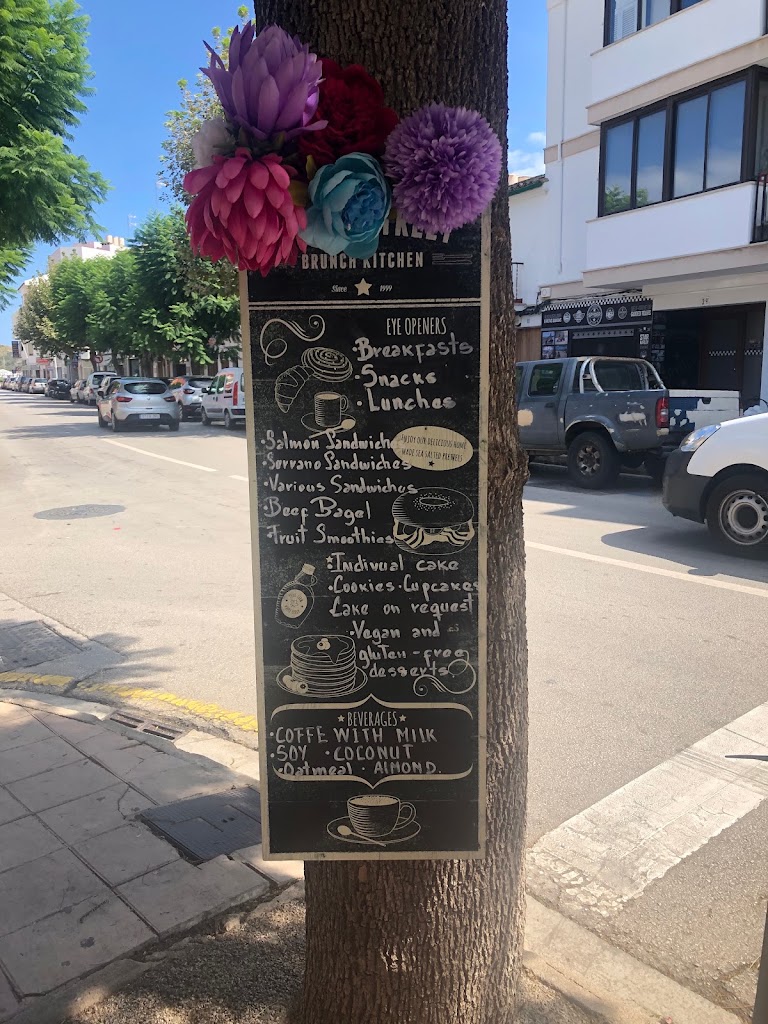 BRUNCH KITCHEN
Since 1999
EYE OPENERS
·Breakfasts
·Snacks
·Lunches
·Salmon Sandwiches
·Serrano Sandwiches
·Various Sandwiches
·Beef Bagel
·Fruit Smoothies
ENJOY OUR DELICIOUS HOME
MADE SEA SALTED
·Indivual cake
·Cookies·Cupcakes
Cake on request
·Vegan and
gluten-free
desserts
BEVERAGES
·COFFE WITH MILK
·SOY ·COCONUT
·Oatmeal ·ALMOND